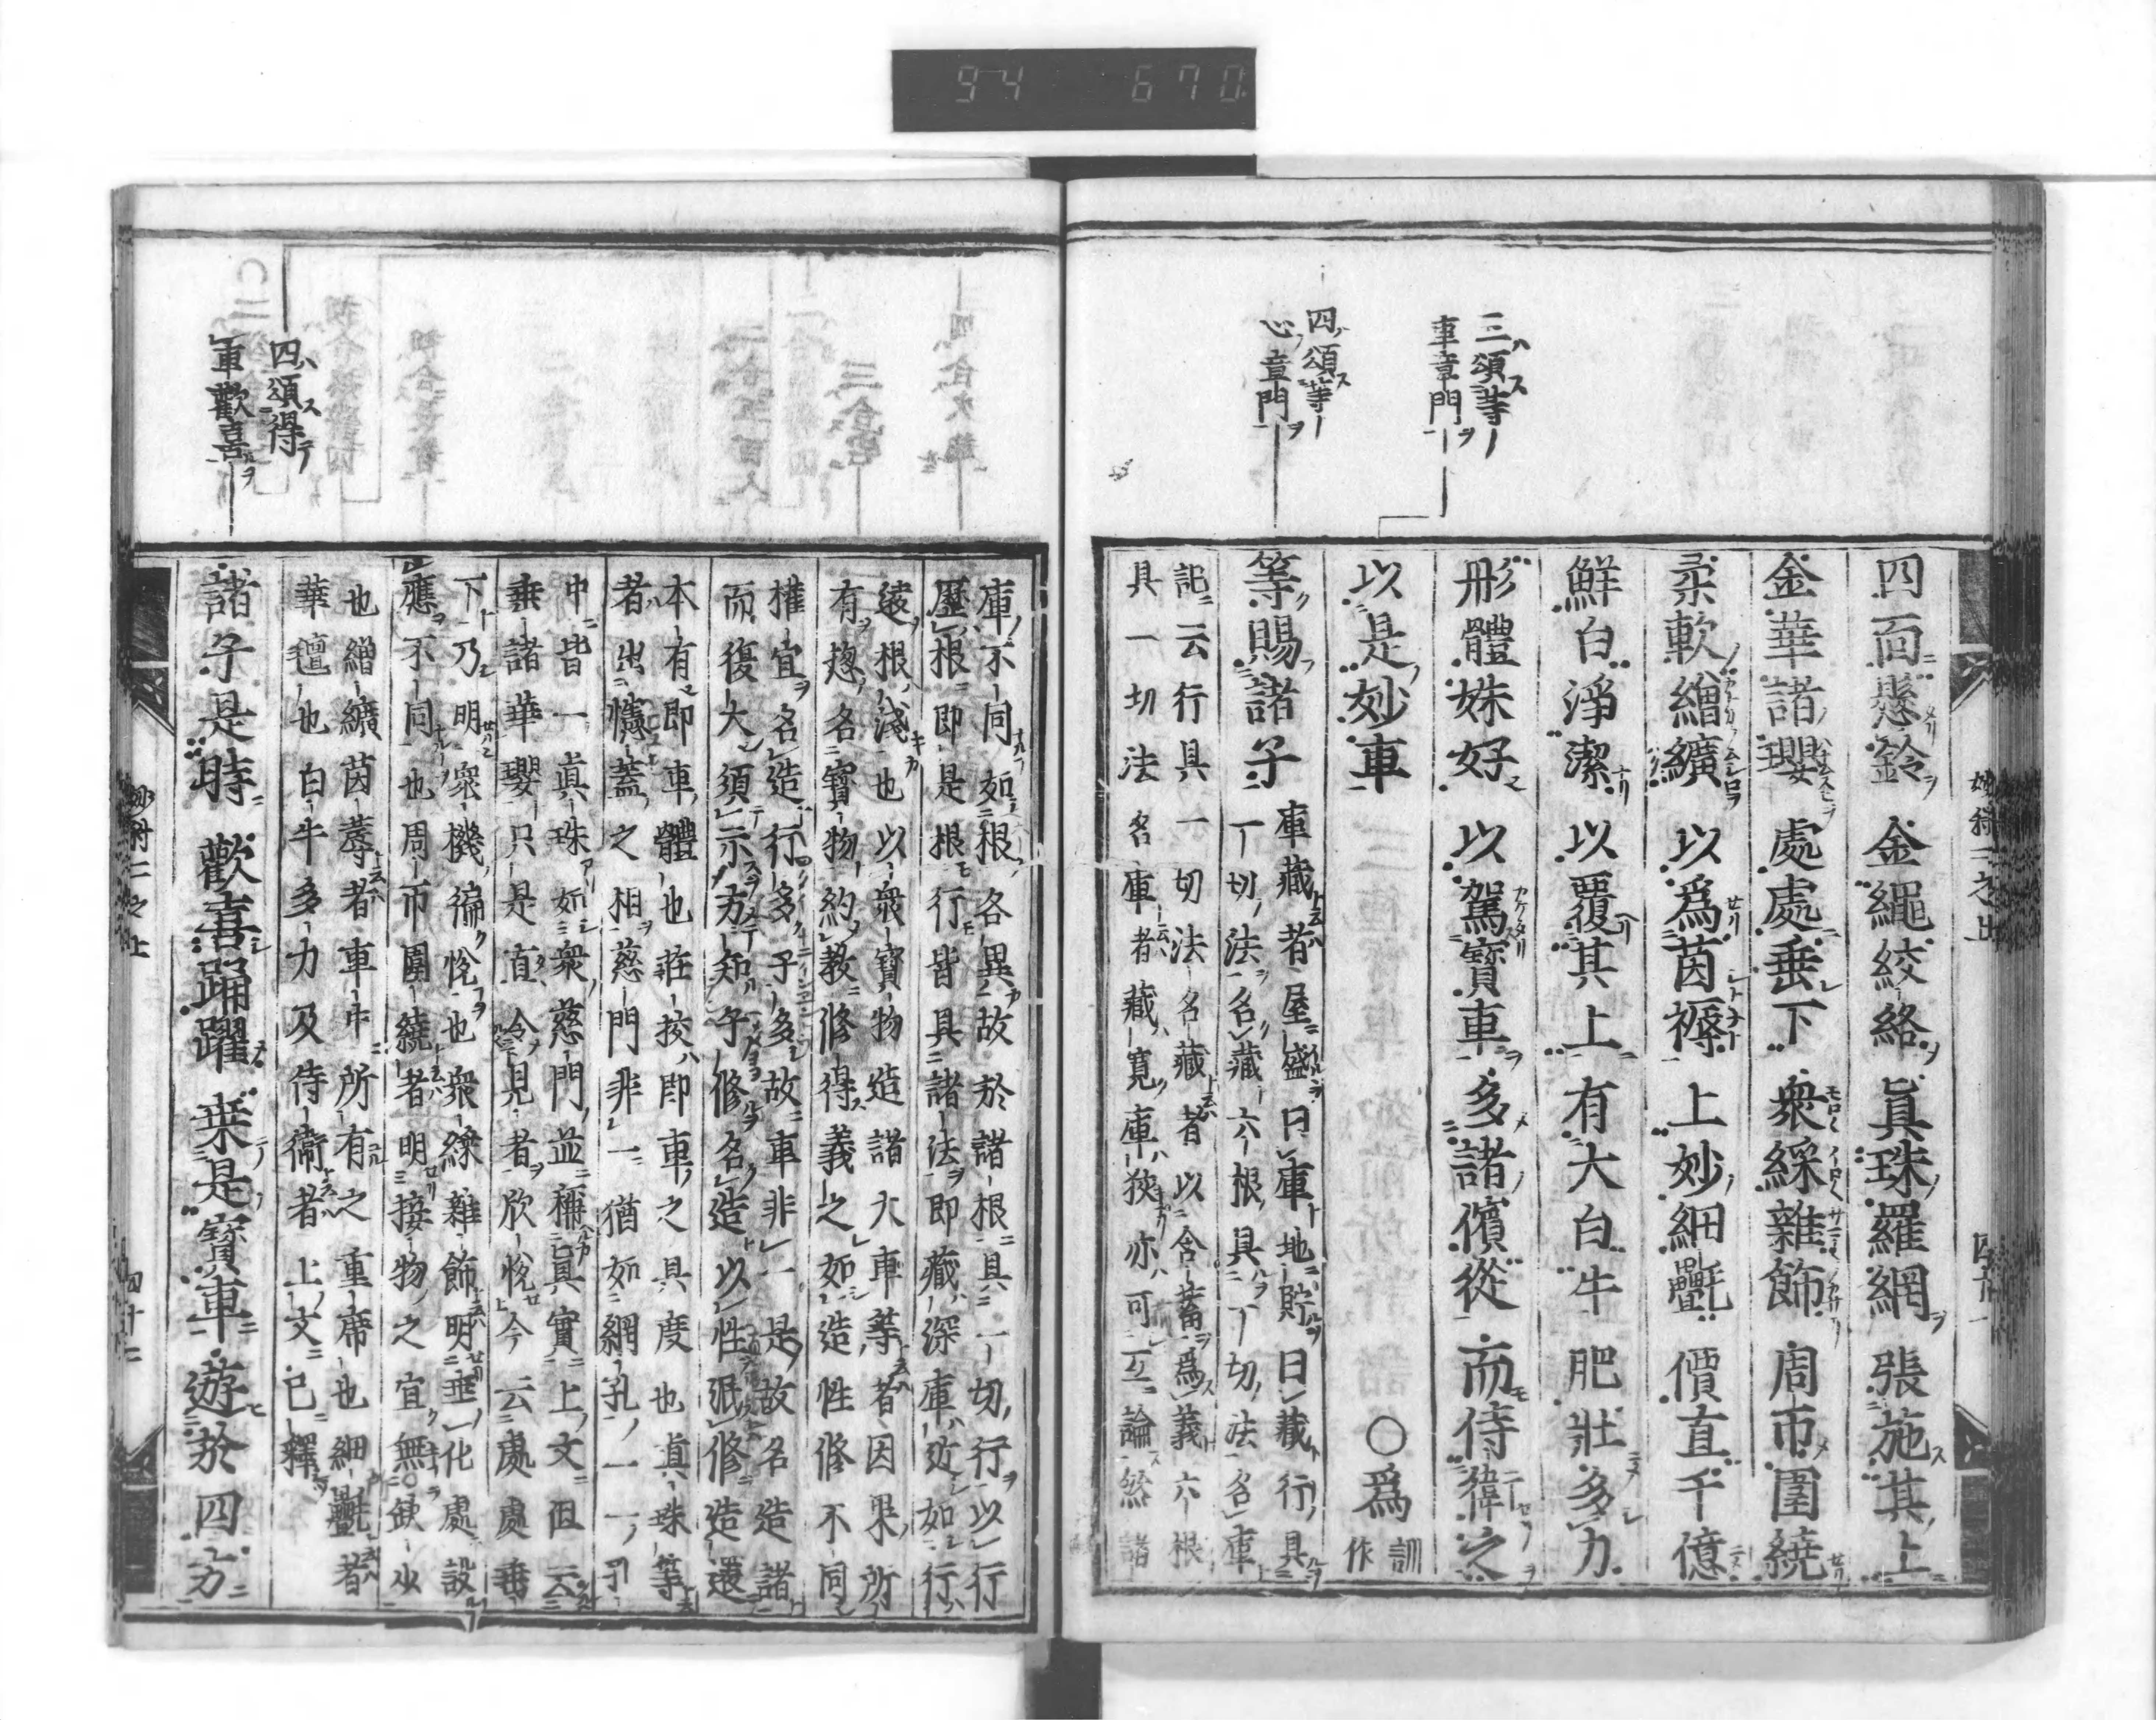 94 670
三頌等
車章門
四頌等
心章門
四面懸鈴金繩絞絡眞珠羅網張施其上
金華諸瓔處處垂下衆綵雜飾周帀圍繞
柔軟繒纊以爲茵褥上妙細㲲價直千億
鮮白淨潔以覆其上有大白牛肥壯多力
形體姝好以駕寶車多諸儐從而侍衛之
以是妙車 ○爲訓作
等賜諸子 庫藏者屋盛曰庫地貯曰藏行具
一切法名藏六根具一切法名庫
記云行具一切法名藏者以含蓄爲義六根
具一切法名庫者藏寬庫狹亦可互論然諸
四頌得
車歡喜
庫不同如根各異故於諸根具一切行以行
歷根即是根行皆具諸法即藏深庫近如行
遠根淺也以衆寶物造諸大車等者因果所
有揔名寶物約教修得義之如造性修不同
權宜名造行多子多故車非一是故名造諸
而復大須示方知子修名造以性泯修造還
本有即車體也莊挍即車之具度也眞珠等
者出幰蓋之相慈門非一猶如網孔一一孔
中皆一眞珠如衆慈門並稱眞實上文但云
垂諸華瓔只是直令見者欣悅今云處處垂
下乃明衆機徧悅也衆綵雜飾明垂化處設
應不同也周帀圍繞者明接物之宜無缺少
也繒纊茵蓐者車中所有之重席也細㲲者
華氎也白牛多力及侍衞者上文已釋
諸子是時歡喜踊躍乗是寶車遊於四方